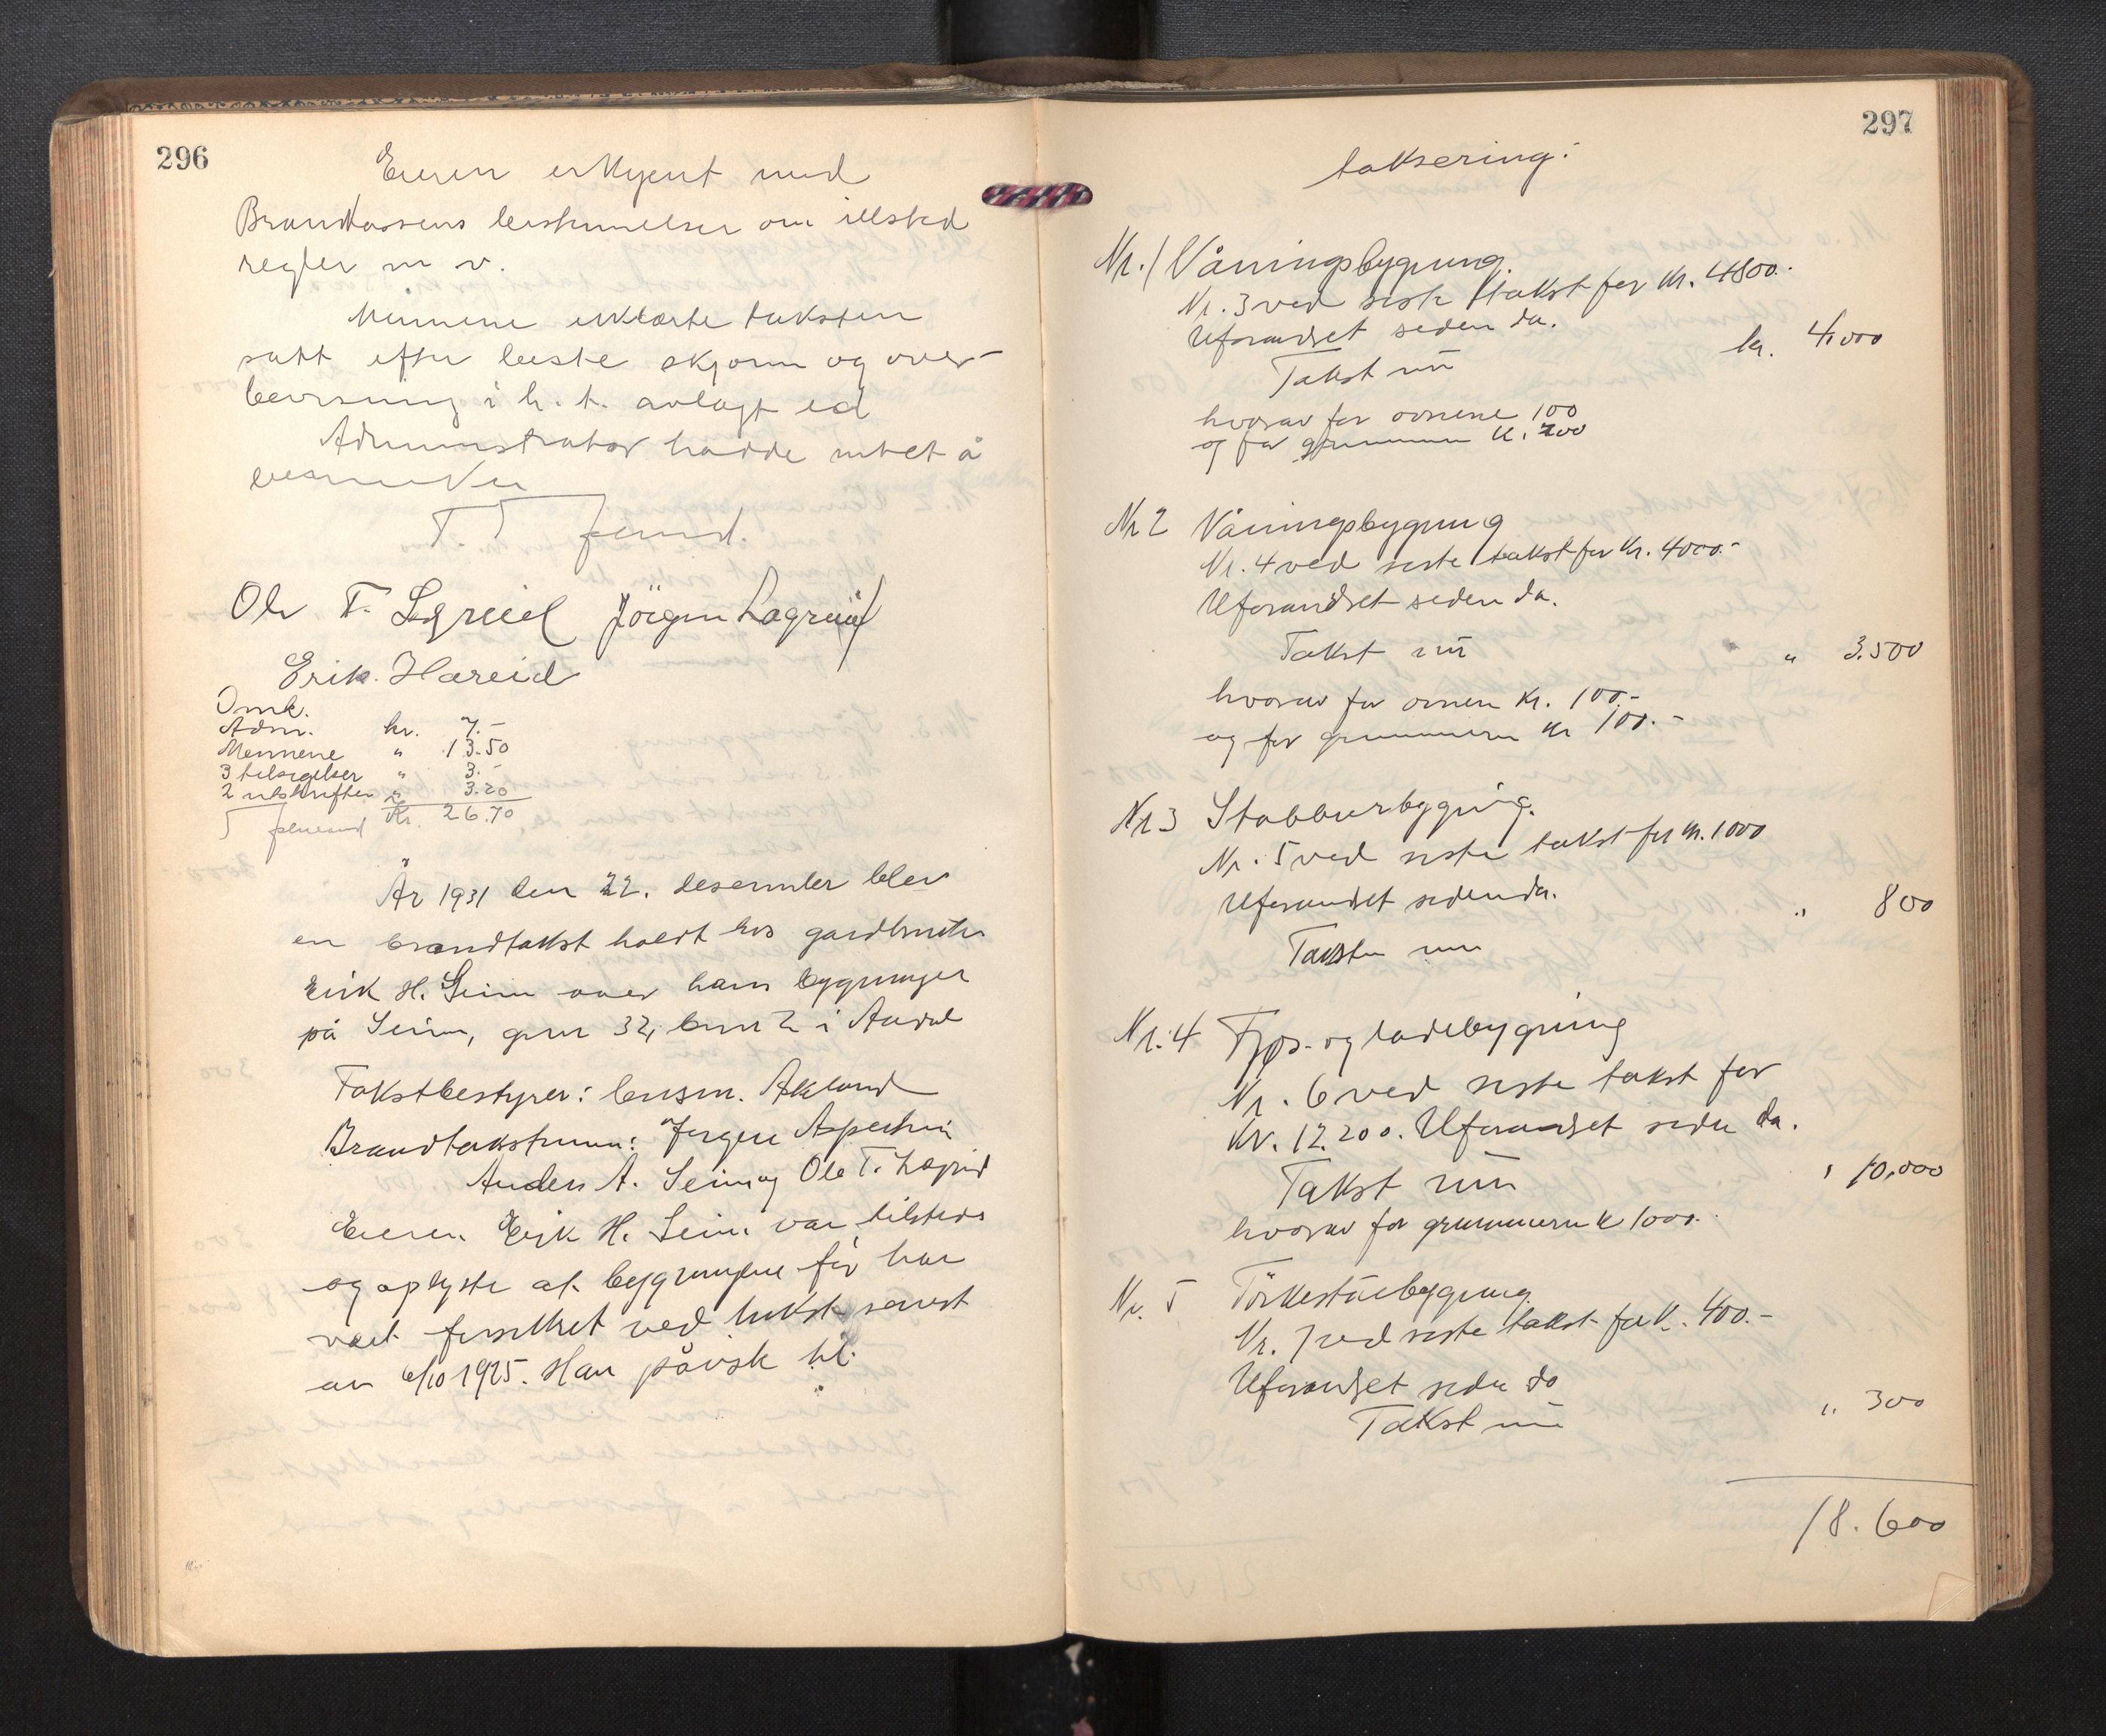 296
Eieren erkjent med
Brandkassens bestemmelser om illsted
regler m v.
Mennene erklærte taksten
satt efter beste skjønn og over-
bevisning i h. t. avlagt ed
Administrator hadde intet å
bemerke
Ole T. Lægreid Jörgen Lægreid
Erik Hareid
Omk.
Adm. kr. 7.-
Mennene " 13.50
3 tilsigelser " 3.-
2 utskrifter " 3.20
Kr. 26.70
År 1931 den 22. desember blev
en brandtakst holdt hos gardbruker
Erik H. Seim over hans bygninger
på Seim, gnr 32, bnr 2 i Aurdal
Takstbestyrer: lensm. Akland
Brandtakstmenn: Jørgen
Anders A. Seim og Ole T. Lægreid
Eieren Erik H. Seim var tilstede
og oplyste at bygningene før har
vært forsikret ved takst senest
av 6/10 1925. Han påviste til
297
taksering:
Nr. 1 Våningsbygning
Nr. 3 ved siste takst for kr. 4800.-
Uforandret siden da.
Takst nu kr. 4.000
hvorav for ovnene 100
og for grunnmuren kr. 200
Nr 2 Våningsbygning
Nr. 4 ved siste takst for kr. 4000.-
Uforandret siden da.
Takst nu " 3.500
hvorav for ovnen kr. 100.-
og for grunnmuren kr 100.-
Nr 3 Stabbursbygning.
Nr. 5 ved siste takst for kr. 1000
Uforandret siden da. " 800
Taksten nu
Nr. 4 Fjøs- og ladebygning
Nr. 6 ved siste takst for
kr. 12.200. Uforandret siden da.
Takst nu " 10.000
hvorav for grunnmuren kr 1000.-
Nr. 5 Törkestuebygning
Nr. 7 ved siste takst for kr. 400.-
Uforandret siden da
Takst nu " 300
18.600